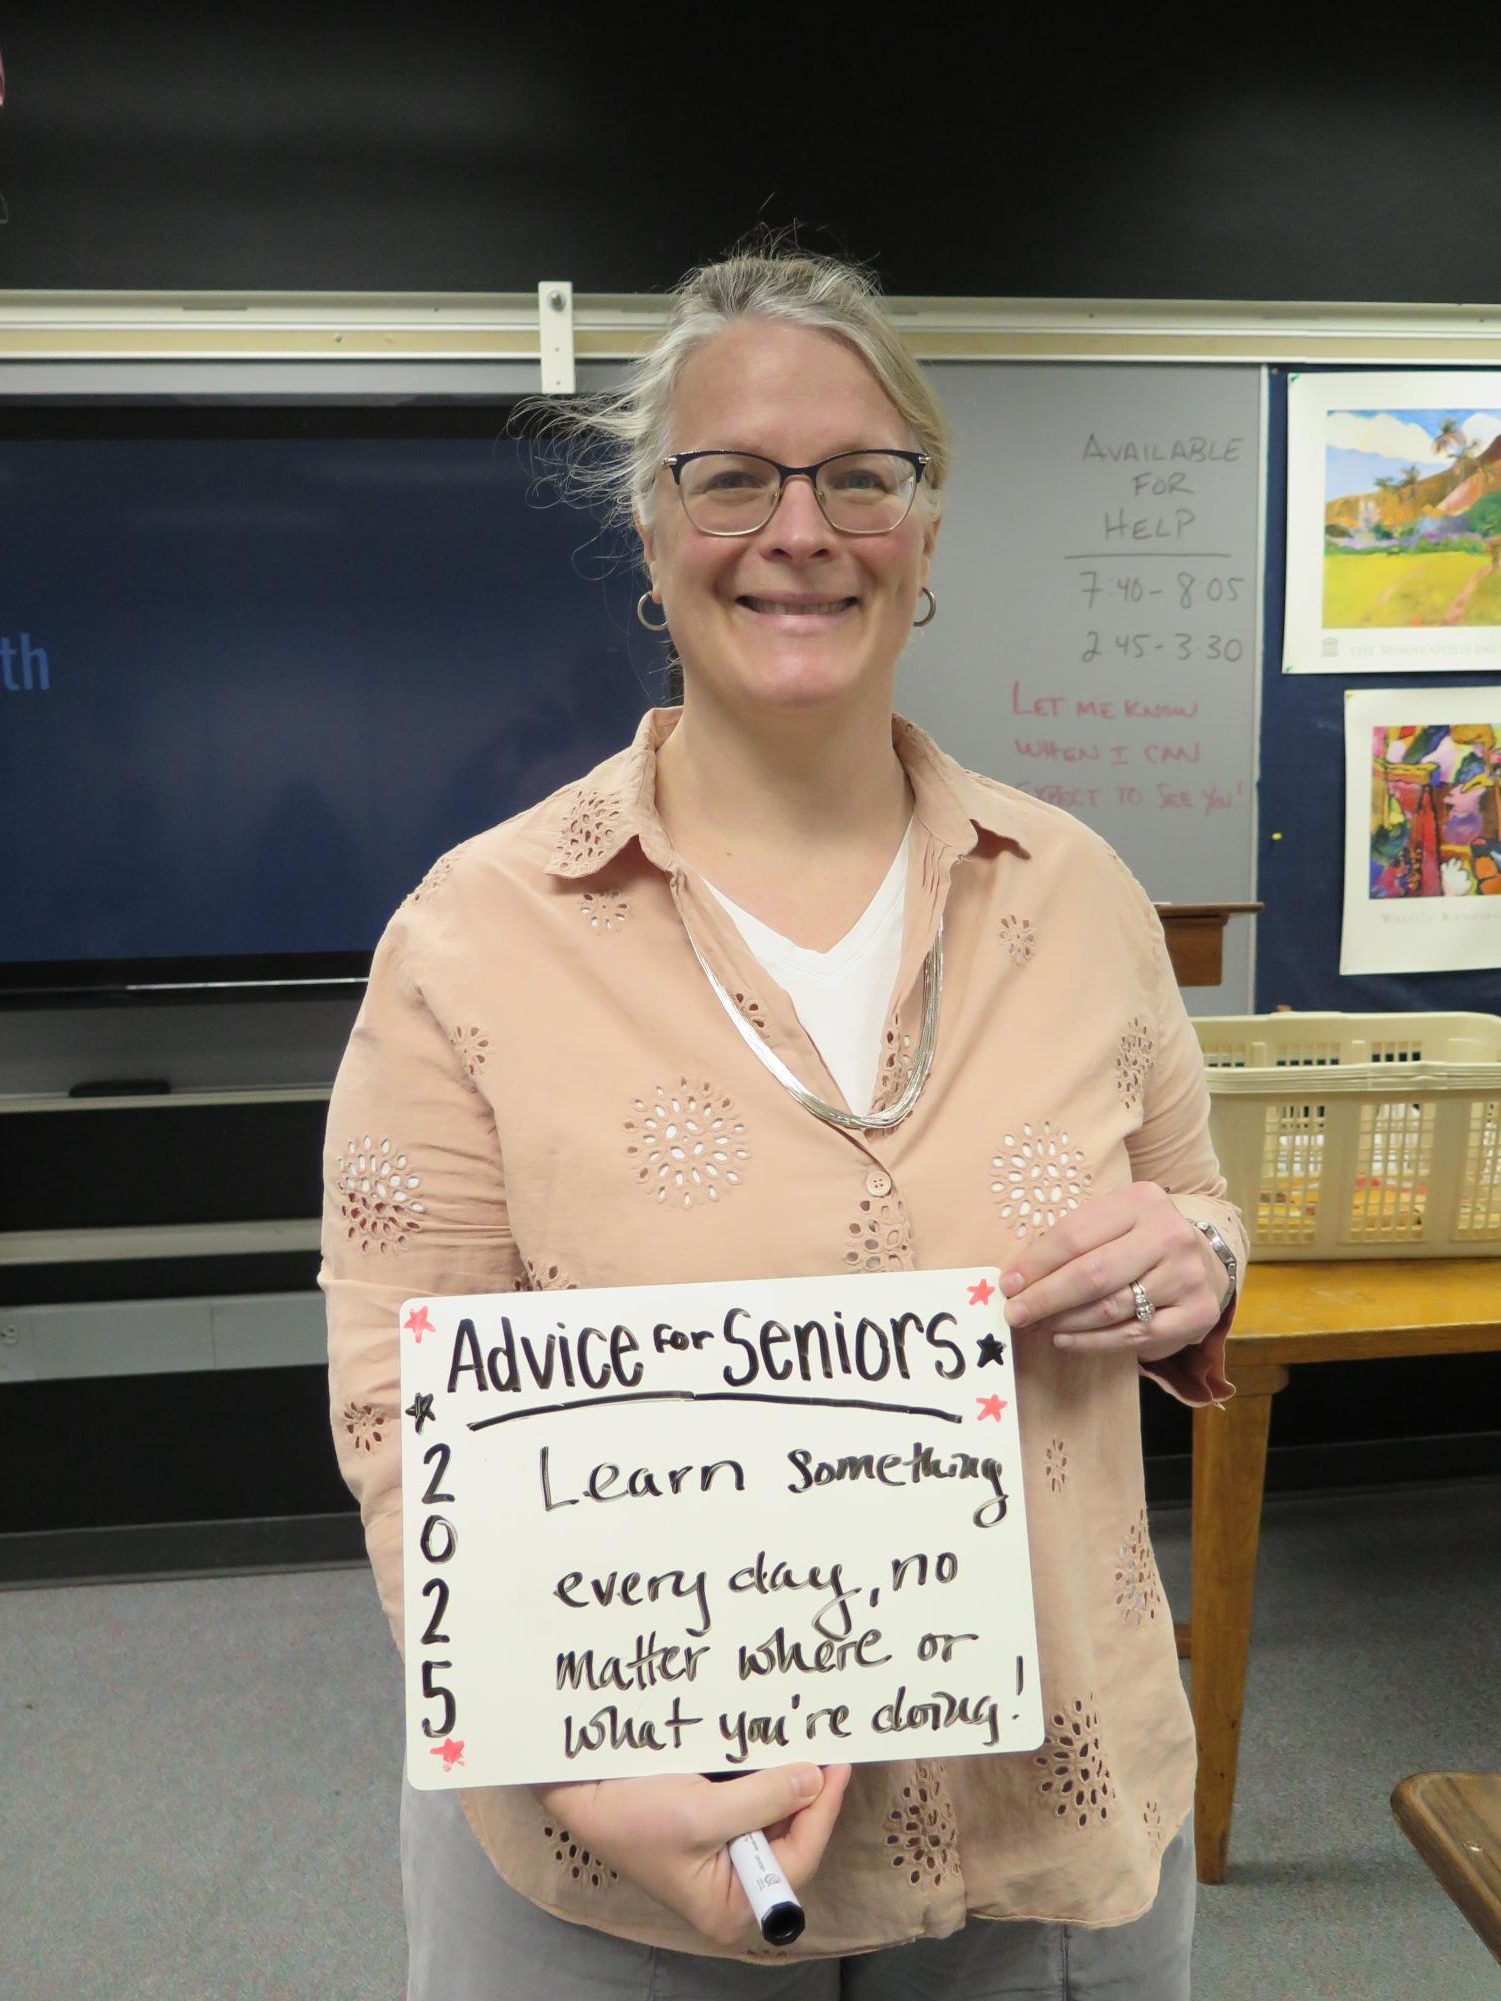 th
AVAILABLE
FOR
HELP
7:40-8:05
2:45-3:30
LET ME KNOW
WHEN I CAN
EXPECT TO SEE YOU!
THE MINNEAPOLIS INS
Wassily Kandins
Advice FOR Seniors
2
0
2
5
Learn something
every day, no
matter where or
what you're doing!